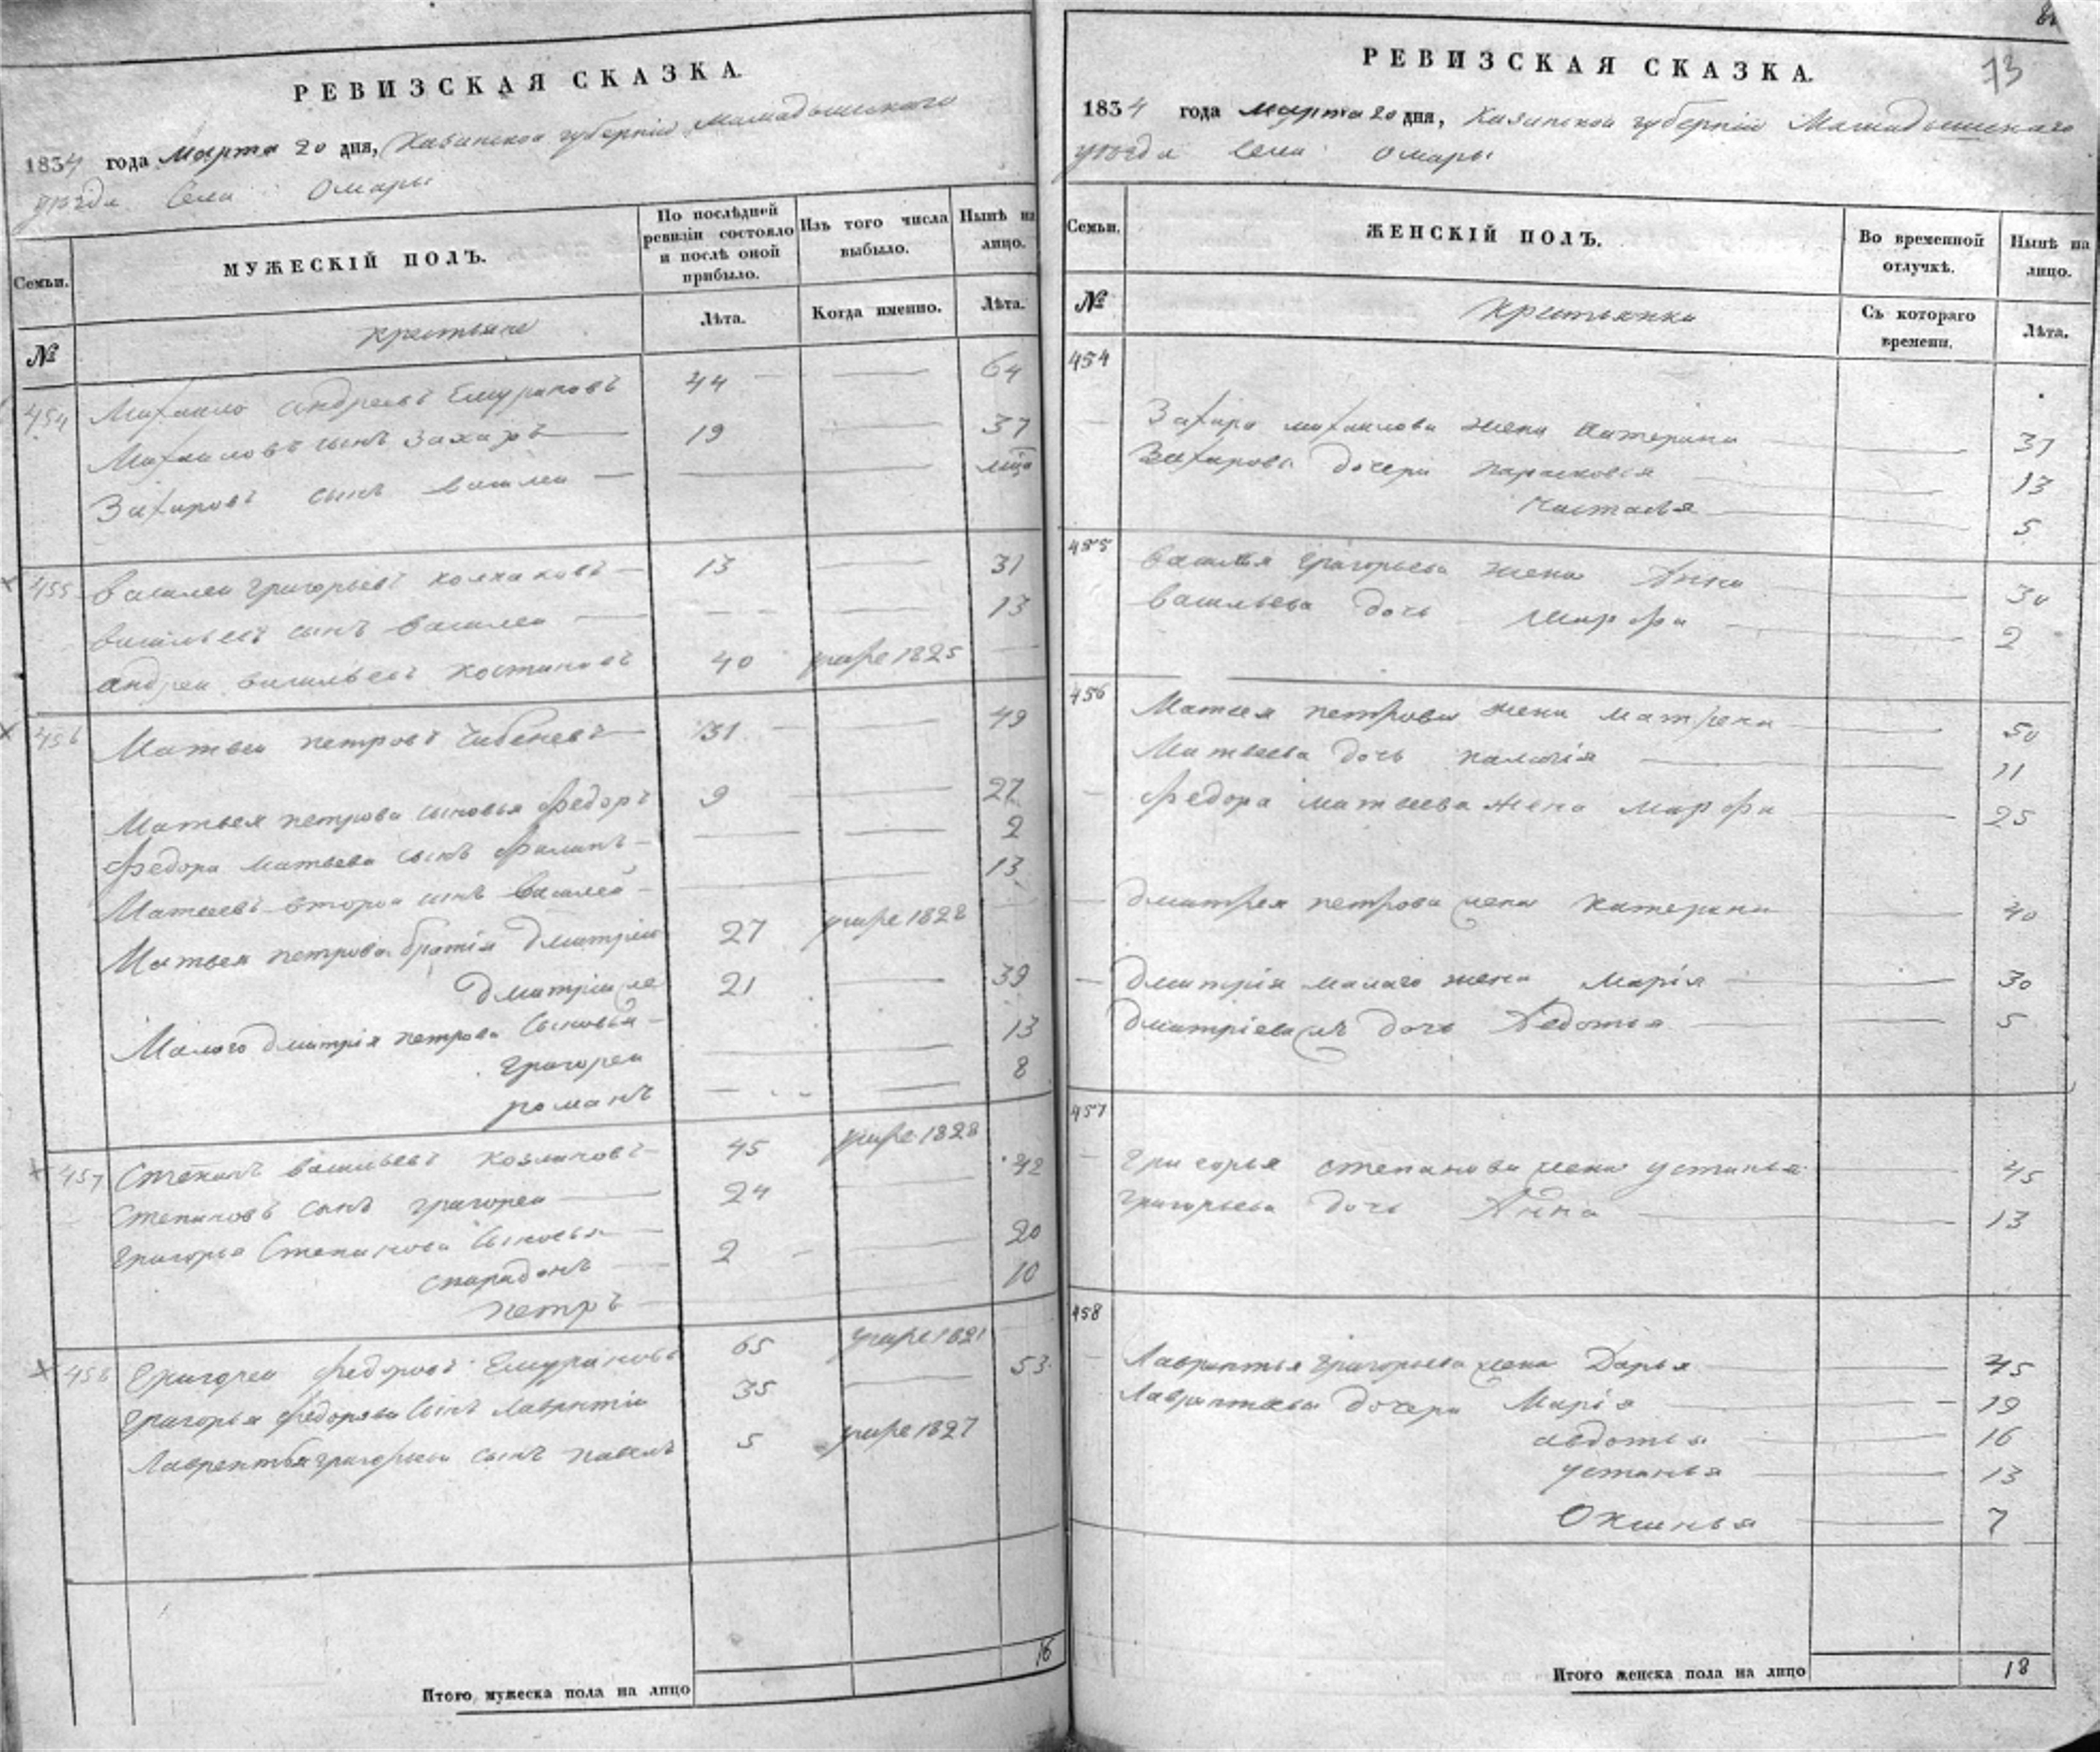 РЕВИЗСКАЯ СКАЗКА.
1834 года Марта 20 дня, Казанской губернiи Мамадышскаго
уѣзда Села Омары
Семьи.
МУЖЕСКІЙ ПОЛЪ.
По послѣдней ревизіи состояло и послѣ оной прибыло.
Изъ того числа выбыло.
Нынѣ на лицо.
№
крестьяне
Лѣта.
Когда именно.
Лѣта.
454 Михаило андреевъ Емурановъ 44 64
Михаиловъ сынъ Захаръ 19 37
Захаровъ сынъ василеи
455 василеи григорьевъ колпаковъ 13 31
васильевъ сынъ василеи 13
андреи васильевъ костинъ 40 умре 1825
456 Матвеи петровъ Чибеневъ 31 49
Матвея петрова сыновья Федоръ 9 27
Федора матвеева сынъ Филипъ 2
Матвеевъ второи сынъ василеи 13
Матвея петрова братiя Дмитрiи 27 умре 1828
Дмитрiи 21 39
Малого дмитрiя петрова сыновья
григореи 13
романъ 8
457 Степанъ васильевъ козминовъ 45 умре 1828
Степановъ сынъ григореи 24 42
григорья Степанова Сыновья
спиридонъ 2 20
петръ 10
458 Григореи федоровъ Емурановъ 65 умре 1821
григорья федорова Сынъ лаврентiи 35 53
Лаврентья григорьева сынъ павелъ 5 умре 1827
Итого мужеска пола на лицо 16
73
РЕВИЗСКАЯ СКАЗКА.
1834 года марта 20 дня, Казанской губернiи Мамадышскаго
уѣзда Села Омары
Семьи.
ЖЕНСКІЙ ПОЛЪ.
Во временной отлучкѣ.
Нынѣ на лицо.
№
крестьянки
Съ котораго времени.
Лѣта.
454
Захара михаилова жена Катерина 37
Захаровы дочери парасковья 13
Настасья 5
455 василья григорьева жена Анна 30
васильева дочь Марфа 2
456 Матвея петрова жена матрена 50
Матвеева дочь палагiя 11
Федора матвеева жена марфа 25
Дмитрея петрова жена катерина 40
Дмитрiя малаго жена Марiя 30
Дмитрiева дочь Авдотья 5
457
григорья степанова жена устинья 45
григорьева дочь Анна 13
458
Лаврентья григорьева жена Дарья 45
Лаврентьева дочери Марiя 19
авдотья 16
устинья 13
Оксинья 7
Итого женска пола на лицо 18